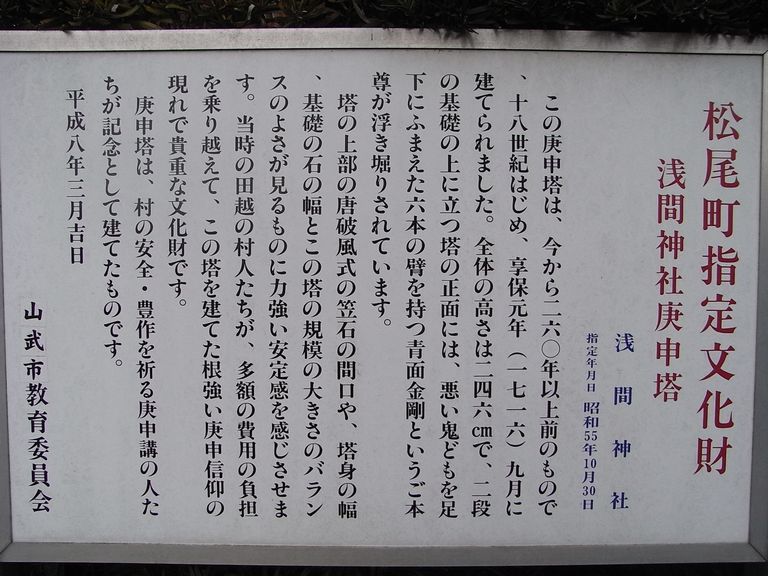 松尾町指定文化財
浅間神社庚申塔
浅間神社
指定年月日 昭和55年10月30日
この庚申塔は、今から二六〇年以上前のもので
、十八世紀はじめ、享保元年（一七一六）九月に
建てられました。全体の高さは二四六cmで、二段
の基礎の上に立つ塔の正面には、悪い鬼どもを足
下にふまえた六本の臂を持つ青面金剛というご本
尊が浮き堀りされています。
塔の上部の唐破風式の笠石の間口や、塔身の幅
、基礎の石の幅とこの塔の規模の大きさのバラン
スのよさが見るものに力強い安定感を感じさせま
す。当時の田越の村人たちが、多額の費用の負担
を乗り越えて、この塔を建てた根強い庚申信仰の
現れで貴重な文化財です。
庚申塔は、村の安全・豊作を祈る庚申講の人た
ちが記念として建てたものです。
平成八年三月吉日
山武市教育委員会